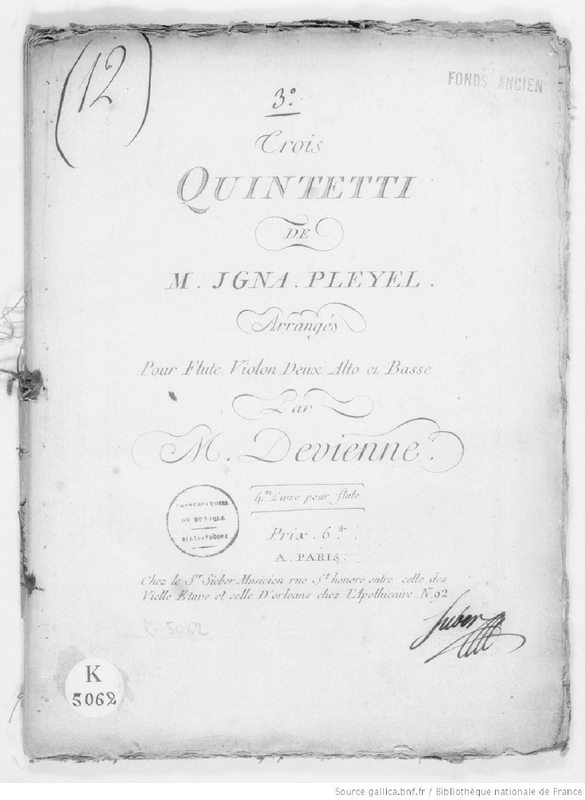 (12)
FONDS ANCIEN
3º
Trois
QUINTETTI
DE
M. JGNA. PLEYEL.
Arrangés
Pour Flute Violon Deux Alto et Basse
Par
M. Devienne.
4.me Livre pour flute
CONSERVATOIRE
DE MUSIQUE
BIBLIOTHÈQUE
Prix. 6tt
A. PARIS.
Chez le Sr. Sieber Musicien rue St. honore entre celle des
Vielle Etuve et celle D'orleans chez l'Apothicaire N. 92
K. 5062
Sieber
K
5062
Source gallica.bnf.fr / Bibliothèque nationale de France